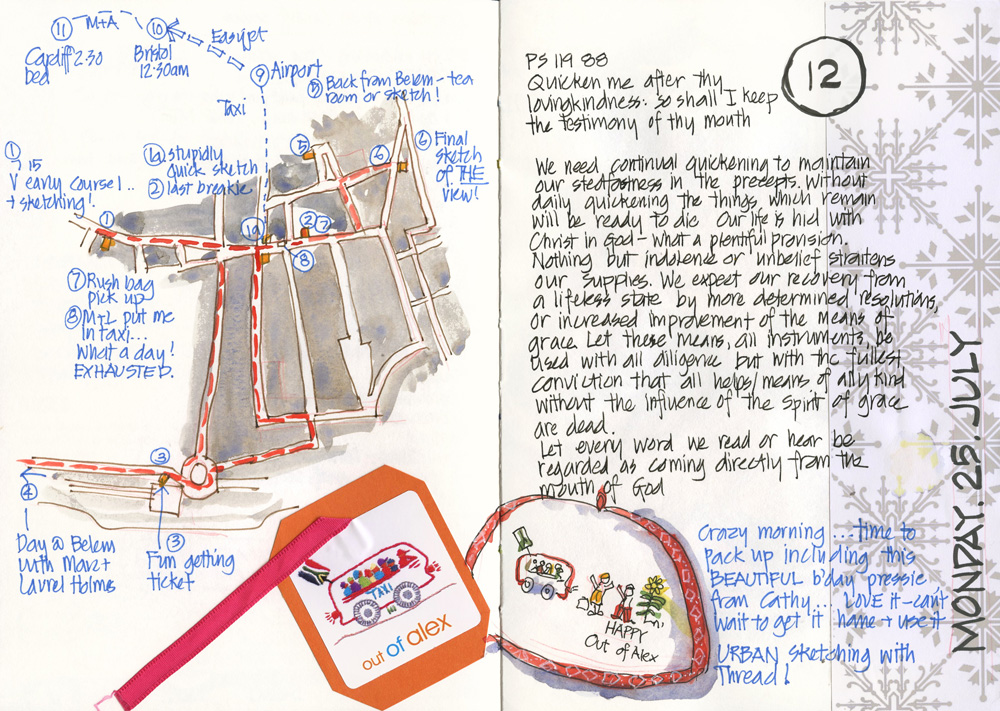 11
M+A
10
Easyjet
Cardiff 2.30
bed
Bristol
12:30am
9 Airport
Taxi
5 Back from Belem - tea
room or sketch!
1
7 15
V early course!..
+ sketching!
1a stupidly
quick sketch
2 last breakie
6 Final
sketch
of THE
view!
5
6
1
1a
2 7
8
7 Rush bag
pick up
8 M+L put me
in taxi...
What a day!
EXHAUSTED.
3
4
Day @ Belem
with Marc +
Laurel Holmes
3
Fun getting
ticket
TAXI
out of alex
12
PS 119 88
Quicken me after thy
lovingkindness: so shall I keep
the testimony of thy mouth
We need continual quickening to maintain
our stedfastness in the precepts. Without
daily quickening the things, which remain
will be ready to die Our life is hid with
Christ in God - what a plentiful provision.
Nothing but indolence or unbelief straitens
our supplies. We expect our recovery from
a lifeless state by more determined resolutions,
or increased improvement of the means of
grace. Let these means, all instruments, be
used with all diligence but with the fullest
conviction that all helps/means of any kind
without the influence of the Spirit of grace
are dead.
Let every word we read or hear be
regarded as coming directly from the
mouth of God
HAPPY
Out of Alex
Crazy morning ... time to
pack up including this
BEAUTIFUL b'day pressie
from Cathy... LOVE it - can't
wait to get it home + use it
URBAN sketching with
Thread!
MONDAY. 25. JULY